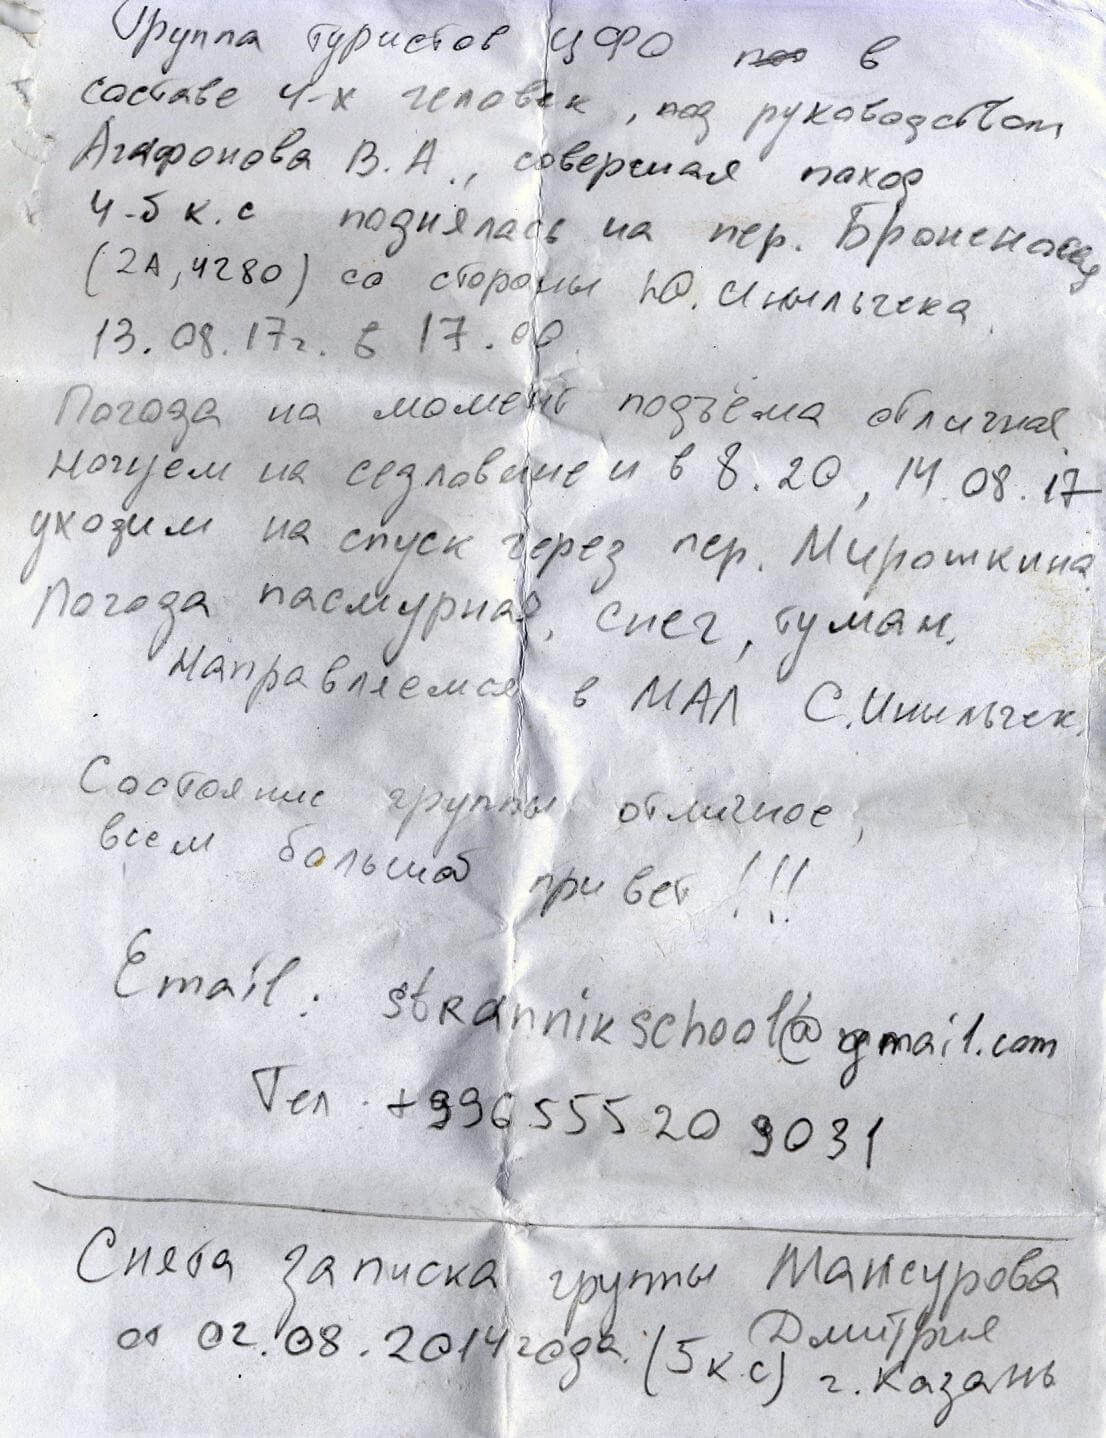 Группа туристов ЦФО в
составе 4-х человек, под руководством
Агафонова В.А., совершая поход
4-5 к.с поднялась на пер. Броненосец
(2А, 4280) со стороны Ю. Иныльчека.
13.08.17г. в 17.00
Погода на момент подъёма отличная.
Ночуем на седловине и в 8.20, 14.08.17
уходим на спуск через пер. Мирошкина.
Погода пасмурная, снег, туман.
Направляемся в МАЛ С.Иныльчек.
Состояние группы отличное,
всем большой привет!!!
Email: strannikschool@gmail.com
Тел. +996 555 20 9031
Снята записка группы Мансурова
Дмитрия
от 02.08.2014 года. (5 к.с) г. Казань